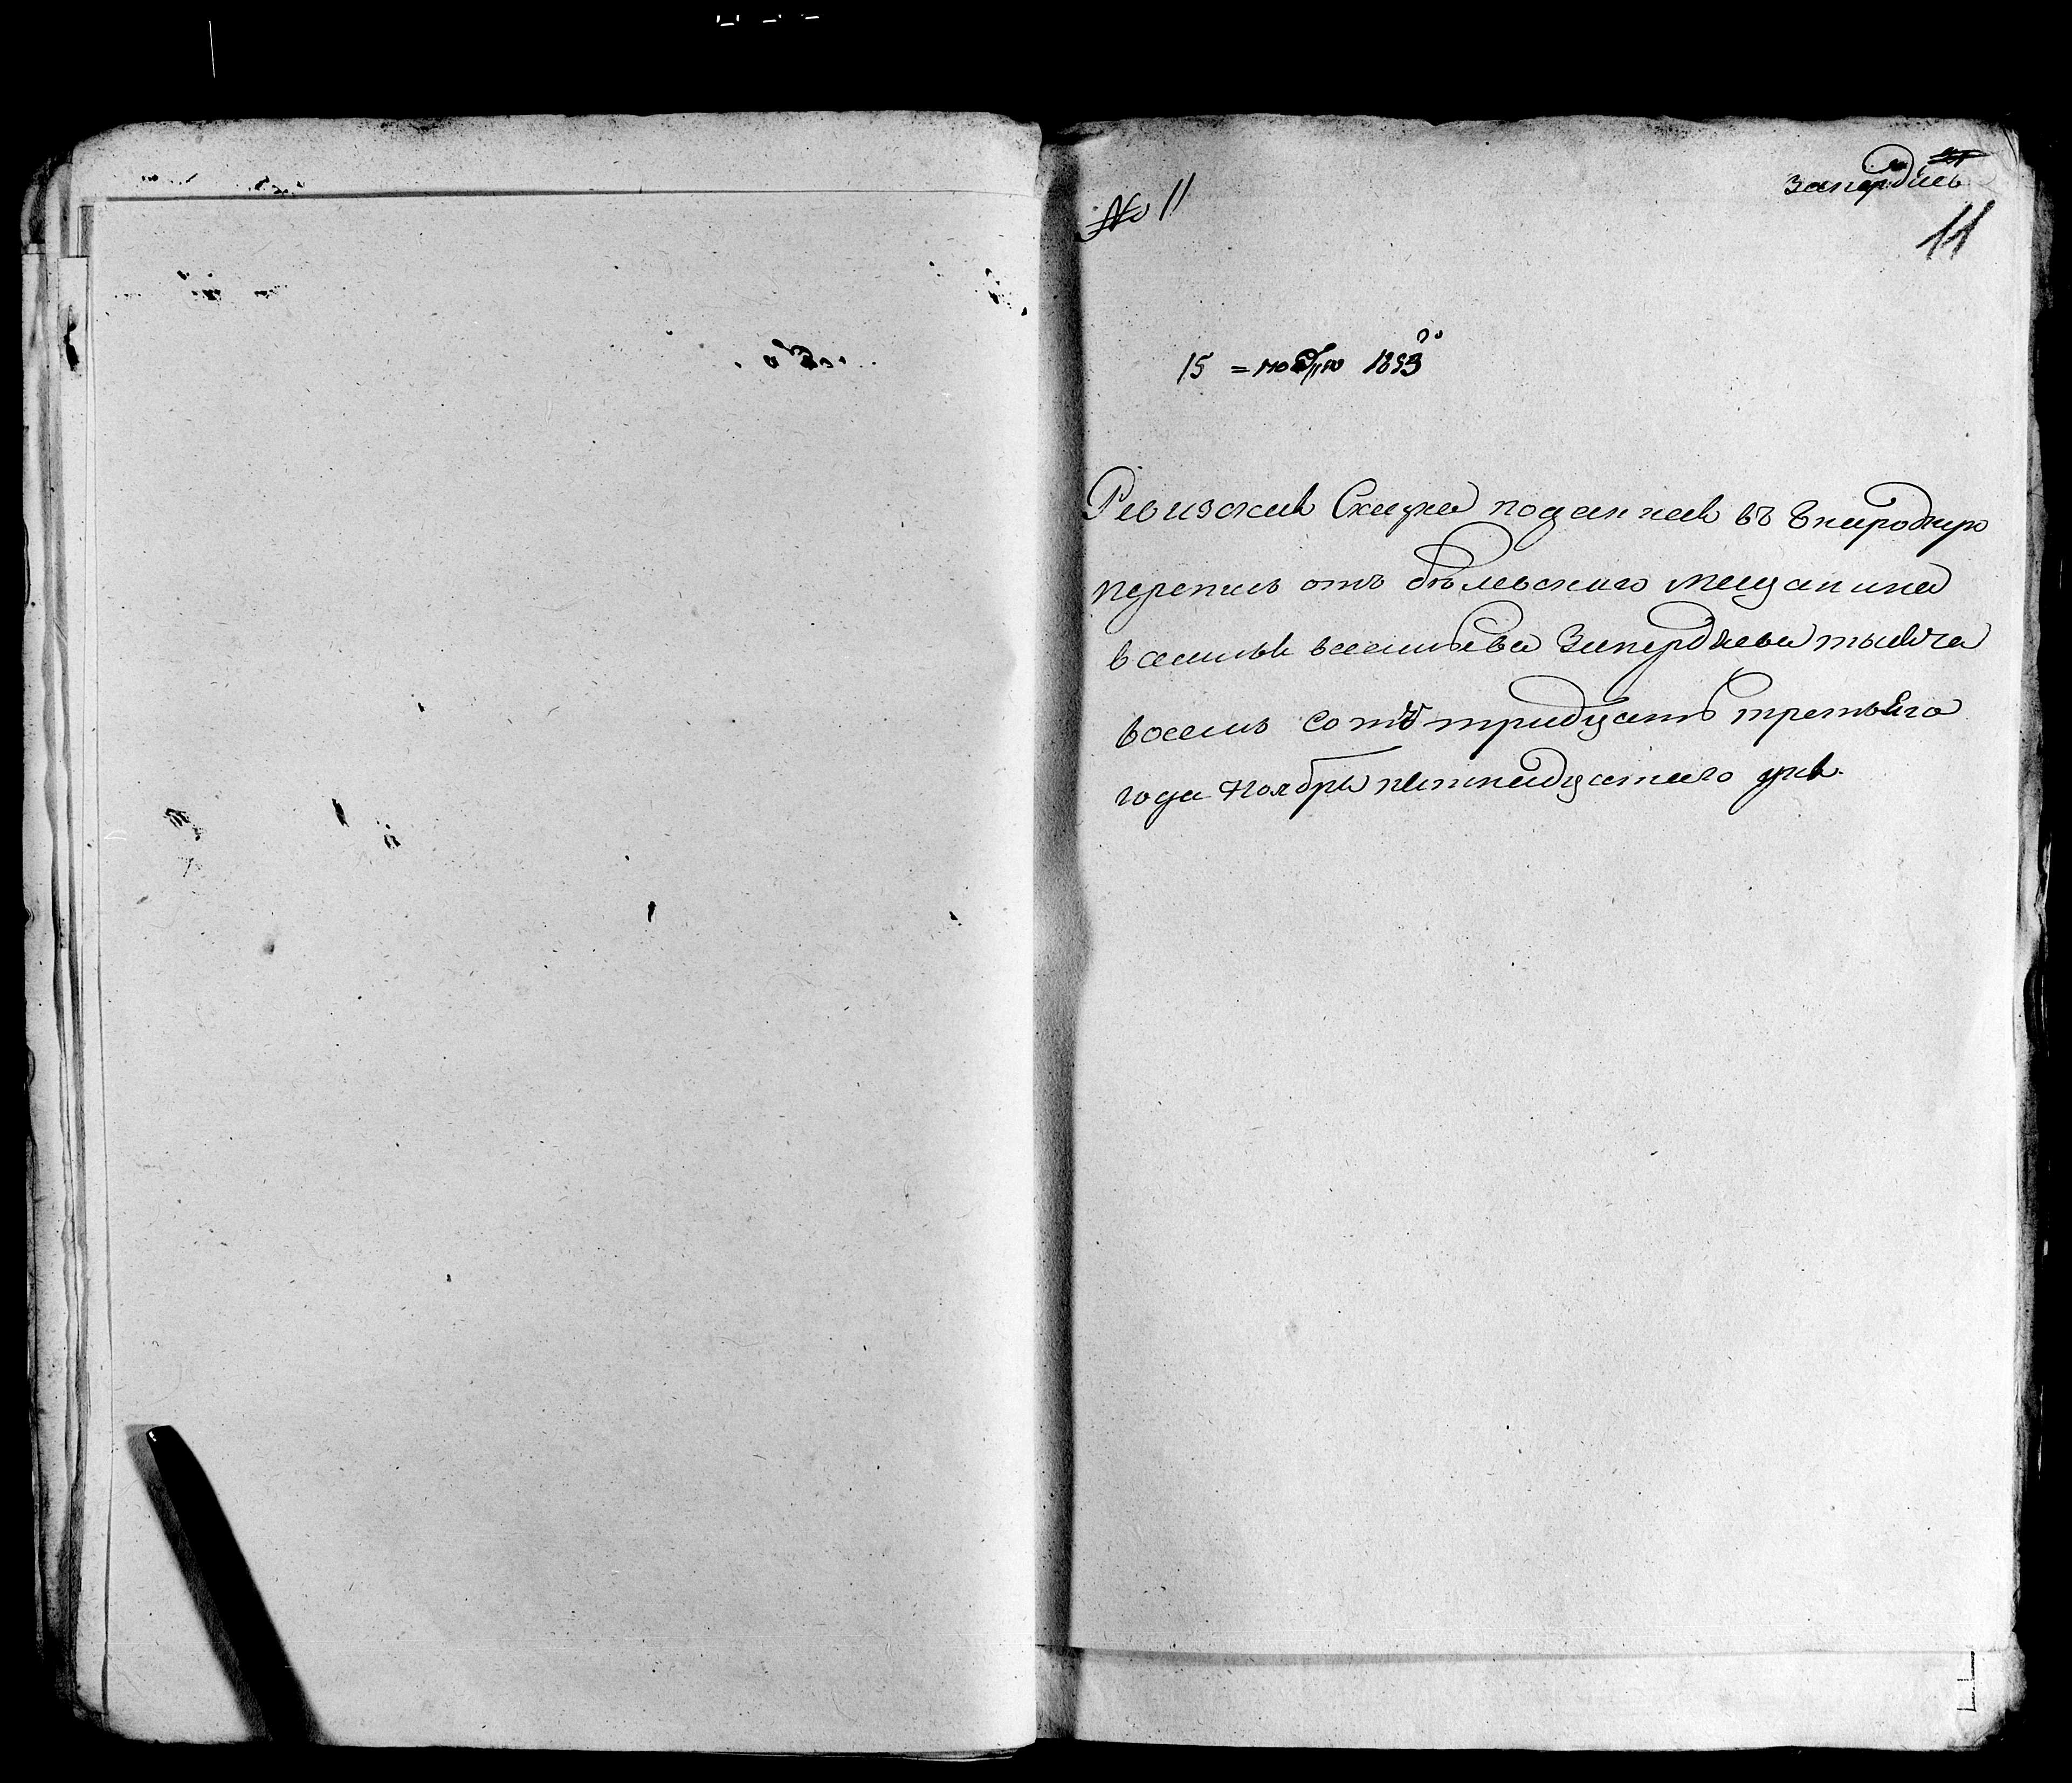 № 11
11
15 = ноября 1833 го
Ревизская Сказка поданная въ Внародную
перепись отъ бѣлевского мещанина
василья васильева Запердяева тысеча
восемь сотъ тридцать третьего
года Ноября пятнадцатого дня.